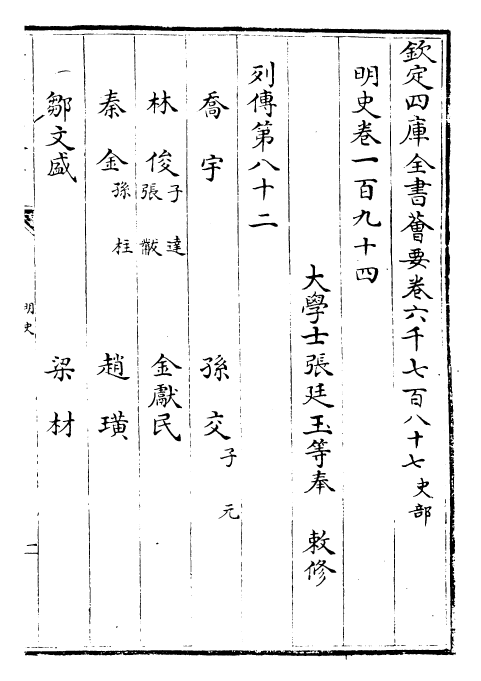 欽定四庫全書薈要卷六千七百八十七 史部
明史卷一百九十四
大學士張廷玉等奉 敕修
列傳第八十二
喬宇 孫交 子元
林俊 子達 張黻 金獻民
秦金 孫柱 趙璜
鄒文盛 梁材
明史
二